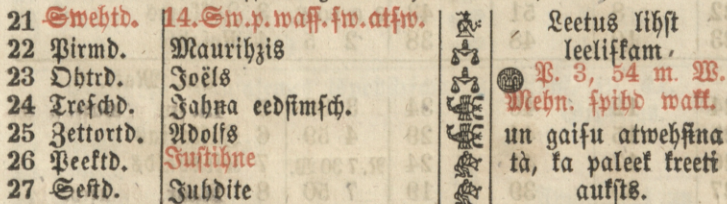 21 Swehtd. 14. Sw. p. waſſ. ſw. atſw. Leetus lihſt
22 Pirmd. Maurihzis leeliſkam
23 Ohtrd. Joëls P. 3, 54 m. W.
24 Treſchd. Jahna eedſimſch. Mehn. ſpihd wakk.
25 Zettortd. Adolfs un gaiſu atwehſina
26 Peektd. Juſtihne tà, ka paleek kreeti
27 Seſtd. Juhdite aukſts.